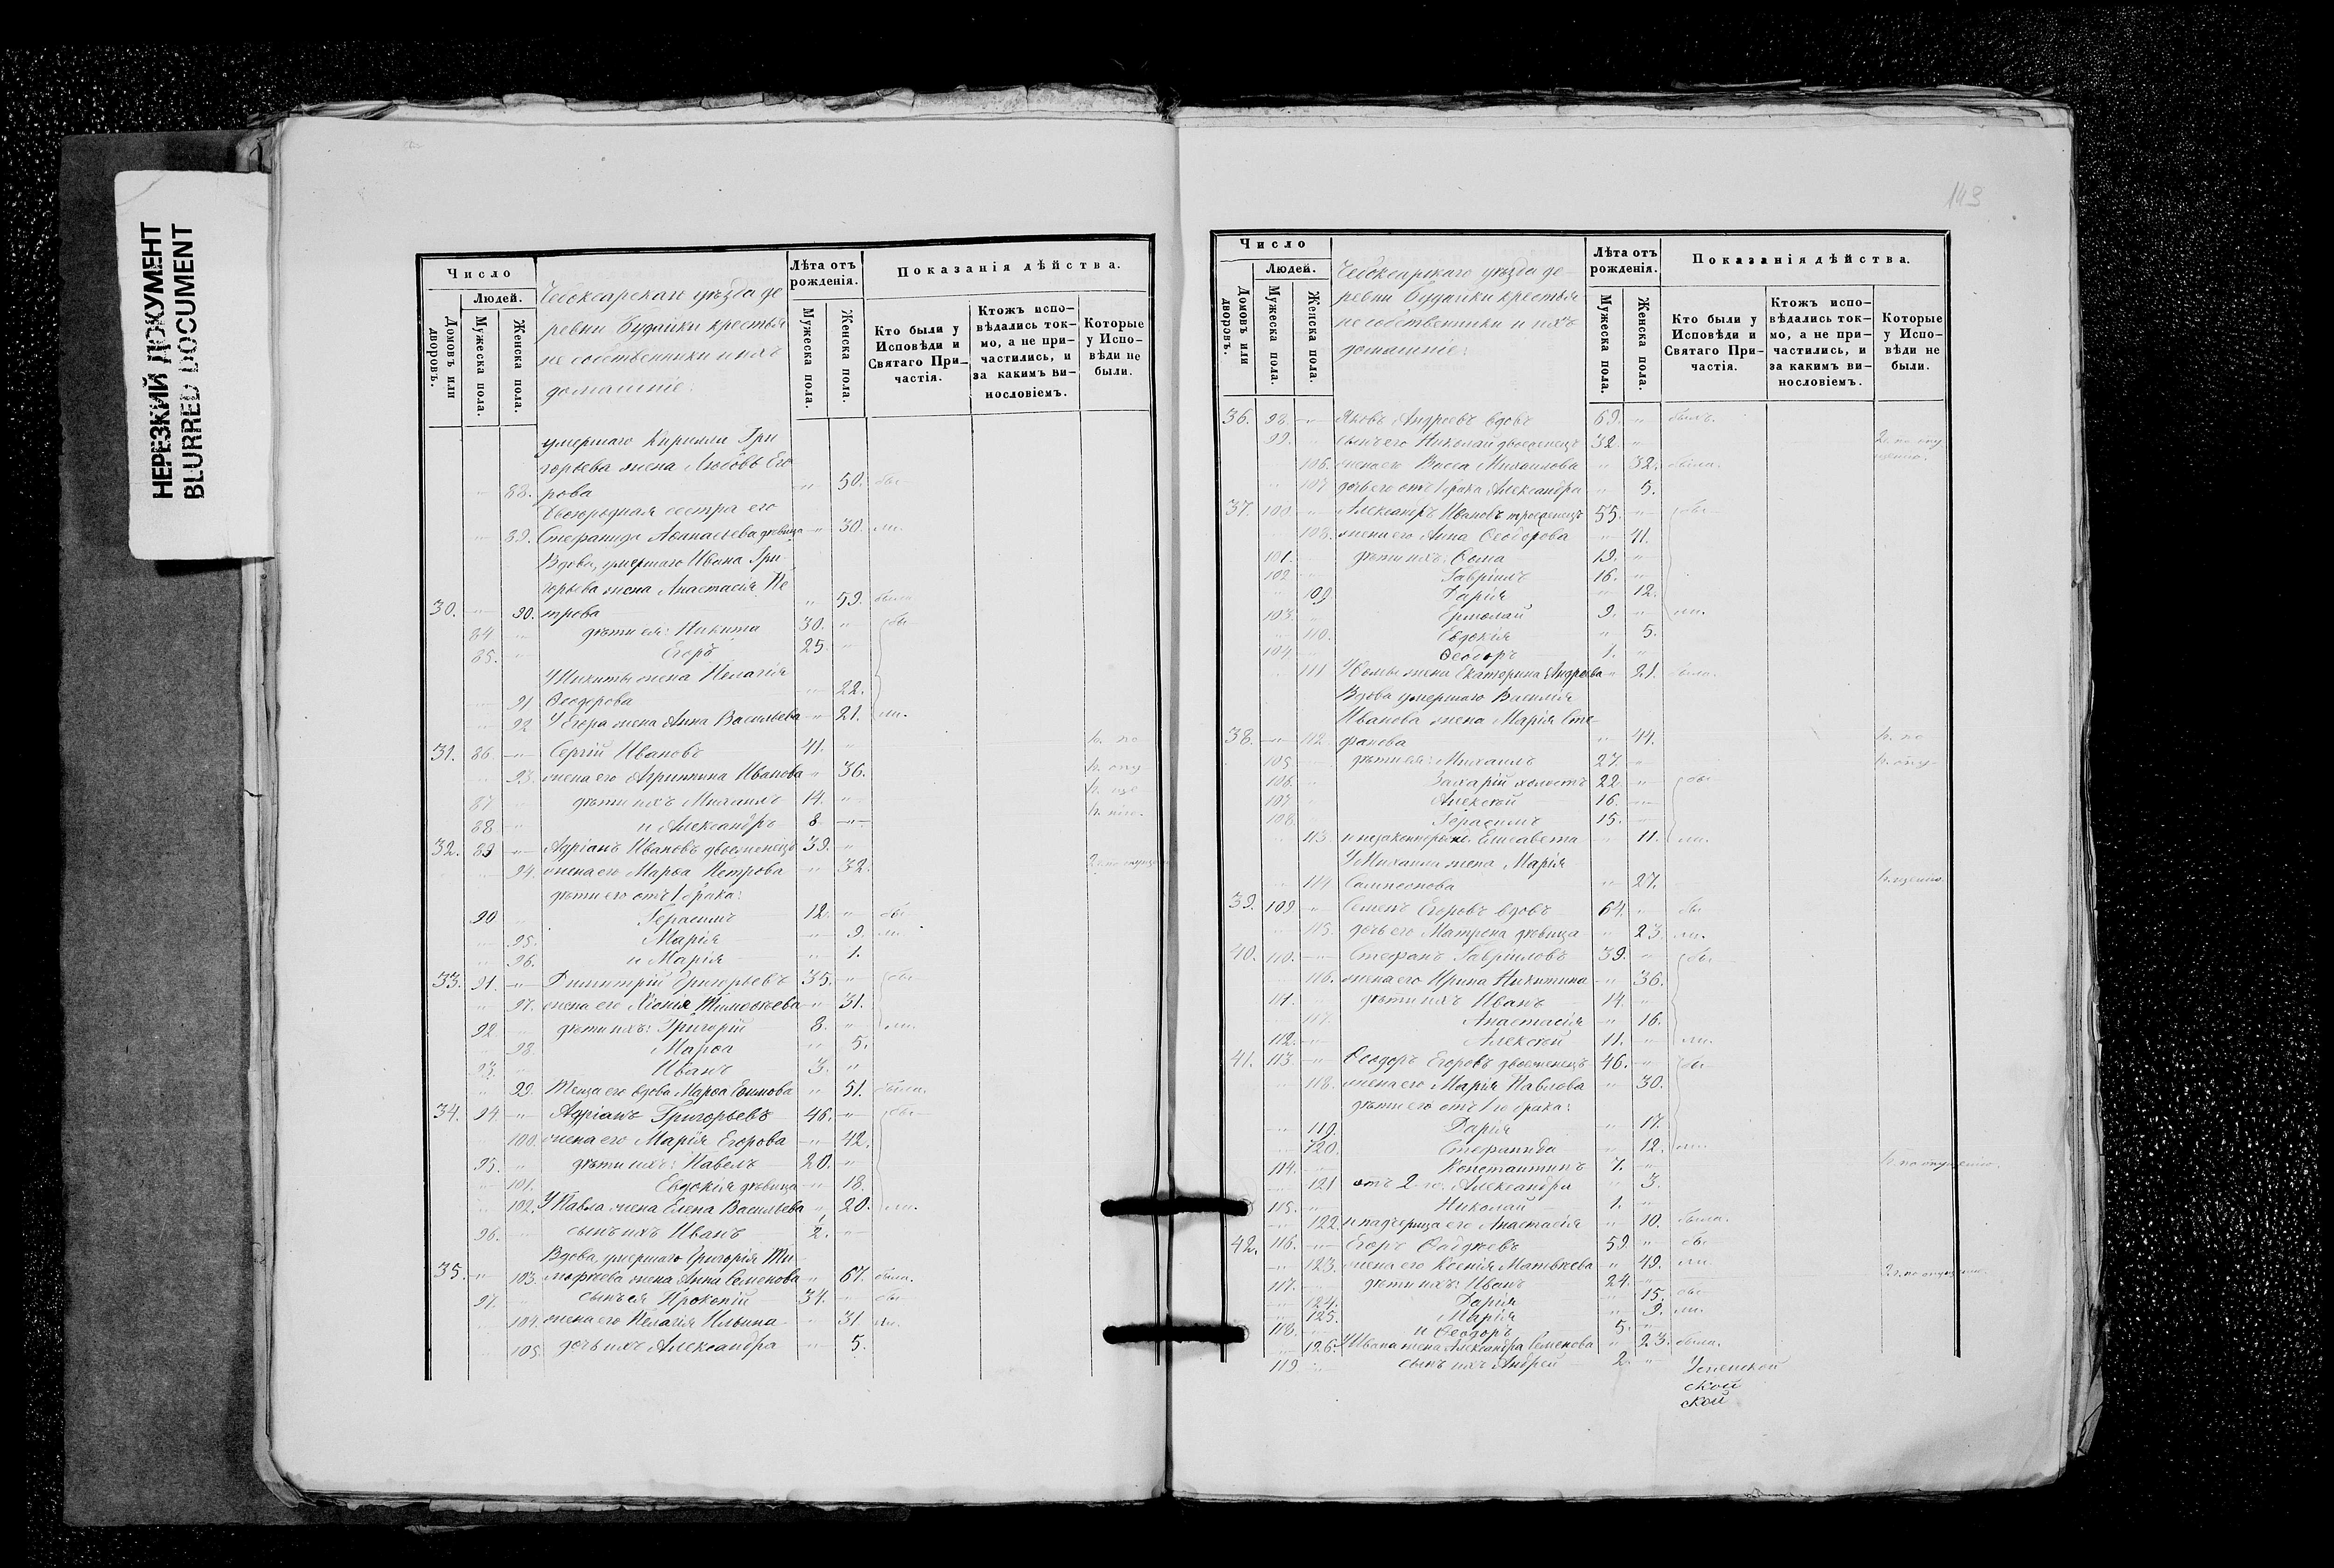 НЕРЕЗКИЙ ДОКУМЕНТ
BLURRED DOCUMENT
Число
Людей.
Домовъ или дворовъ.
Мужеска пола.
Женска пола.
Чебоксарскаго уѣзда де
ревни Будайки крестья
не собственники и ихъ
домашніе:
Лѣта отъ рожденія.
Мужеска пола.
Женска пола.
Показанія дѣйства.
Кто были у Исповѣди и Святаго При-частія.
Ктожъ испо-вѣдались ток-мо, а не при-частились, и за какимъ ви-нословіемъ.
Которые у Испо-вѣди не были.
умершаго Кирилла Гри
горьева жена Любовь Его
88. рова 50. бы
Двоюродная сестра его
89. Стефанида Аѳанасьева дѣвица 30. ли.
Вдова, умершаго Ивана Гри
горьева жена Анастасія Пе
30. 90. трова 59. была
84 дѣти ея: Никита 30. бы
85. Егоръ 25.
У Никиты жена Пелагія
91 Ѳеодорова 22.
92 У Егора жена Анна Васильева 21. ли.
31. 86. Сергій Ивановъ 41. н. по
93. жена его Агрипина Иванова 36. н. опу
87 дѣти ихъ Михаилъ 14. н. ще
88 и Александръ 8. н. нію.
32. 89 Адріанъ Ивановъ двоеженецъ 39.
94. жена его Марѳа Петрова 32.
дѣти его отъ 1 брака:
90 Герасимъ 12. бы
95. Марія 9. ли
96. и Марія 1.
33. 91. Димитрій Григорьевъ 35. бы
97. жена его Хіонія Тимоѳѣева 31.
92 дѣти ихъ: Григорій 8. ли.
98. Марѳа 5.
93. Иванъ 3.
99. Теща его вдова Марѳа Еѳимова 51. была.
34. 94. Адріанъ Григорьевъ 46. бы
100. жена его Марія Егорова 42.
95. дѣти ихъ: Павелъ 20.
101. Евдокія дѣвица 18.
102. У Павла жена Елена Васильева 20. ли.
96. сынъ ихъ Иванъ 2.
Вдова, умершаго Григорія Ти-
35. 103. моѳѣева жена Анна Семенова 67. была.
97. сынъ ея Прокопій 34. бы
104. жена его Пелагія Ильина 31 ли.
105. дочь ихъ Александра 5.
143
Число
Людей.
Домовъ или дворовъ.
Мужеска пола.
Женска пола.
Чебоксарскаго уѣзда де
ревни Будайки крестья
не собственники и ихъ
домашніе:
Лѣта отъ рожденія.
Мужеска пола.
Женска пола.
Показанія дѣйства.
Кто были у Исповѣди и Святаго При-частія.
Ктожъ испо-вѣдались ток-мо, а не при-частились, и за какимъ ви-нословіемъ.
Которые у Испо-вѣди не были.
36. 98. Яковъ Андреевъ вдовъ 69. былъ.
99. сынъ его Николай двоеженецъ 32.
106. жена его Васса Михаилова 32. была.
107 дочь его отъ 1 брака Александра 5.
37. 100. Александръ Ивановъ троеженецъ 55. бы
108. жена его Анна Ѳеодорова 41.
101. дѣти ихъ: Ѳома 19.
102 Гавріилъ 16.
109 Дарія 12.
103. Ермолай 9. ли.
110. Евдокія 5.
104. Ѳеодоръ 1.
111 У Ѳомы жена Екатерина Андреева 21. была.
Вдова умершаго Василія
Иванова жена Марія Сте-
38. 112. фанова 44. н. по
105 дѣти ея: Михаилъ 27. н. опу-
106. Захарій холостъ 22. бы
107 Алексѣй 16.
108. Герасимъ 15.
113. и незаконнорожд. Елисавета 11. ли.
У Михаила жена Марія
114. Сампсонова 27. н. щенію.
39. 109 Семенъ Егоровъ вдовъ 64. бы
115. дочь его Матрена дѣвица 23. ли.
40. 110. Стефанъ Гавриловъ 39. бы
116. жена его Ирина Никитина 36.
111. дѣти ихъ Иванъ 14.
117. Анастасія 16.
112. Алексѣй 11. ли.
41. 113. Ѳеодоръ Егоровъ двоеженецъ 46. бы
118. жена его Марія Павлова 30.
дѣти его отъ 1го брака:
119 Дарія 17.
120. Стефанида 12. ли
114. Константинъ 7. н. по опущенію.
121 отъ 2-го. Александра 3.
115. Николай 1.
122. и падчерица его Анастасія 10. была.
42. 116. Егоръ Ѳаддѣевъ 59. бы
123. жена его Ксенія Матвѣева 49. ли
117. дѣти ихъ: Иванъ 24.
124. Дарія 15. бы
125. Марія 9. ли.
118. и Ѳеодоръ 5.
126. У Ивана жена Александра Семенова 23. была.
119 сынъ ихъ Андрей 2.
ской
ской